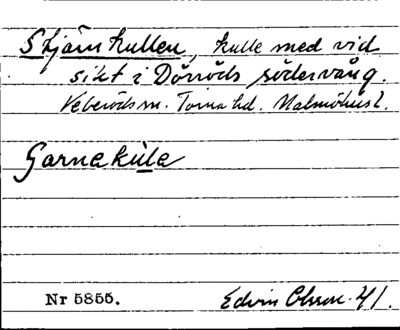 Stjärnkullen, kulle med vid
sikt i Dörröds södervång.
Veberöds sn. Torna hd. Malmöhus l.
Garnekula
Nr 5855.
Edvin Olsson. 41.